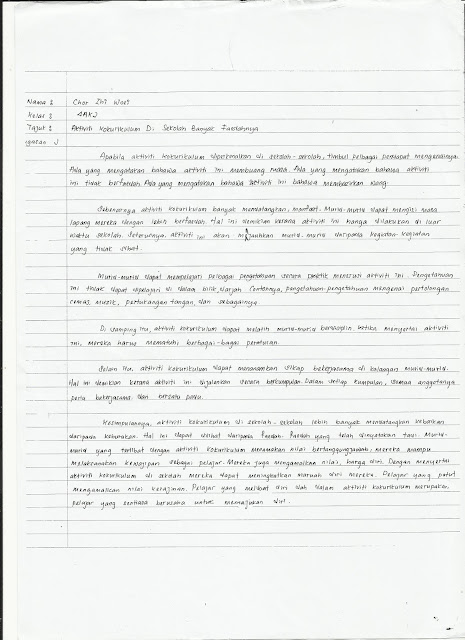 Nama : Chor Zhi Woei
Kelas : 4AKJ
Tajuk : Aktiviti Kokurikulum Di Sekolah Banyak Faedahnya
Apabila aktiviti kokurikulum diperkenalkan di sekolah-sekolah, timbul pelbagai pendapat mengenainya.
Ada yang mengatakan bahawa aktiviti ini membuang masa. Ada yang mengatakan bahawa aktiviti
ini tidak berfaedah. Ada yang mengatakan bahawa aktiviti ini bahawa wang.
Sebenarnya aktiviti kokurikulum banyak mendatangkan manfaat. Murid-murid dapat mengisi masa
lapang mereka dengan lebih berfaedah. Hal ini demikian kerana aktiviti ini hanya dilakukan di luar
waktu sekolah. Seterusnya, aktiviti ini akan menjauhkan murid-murid daripada kegiatan-kegiatan
yang tidak sihat.
Murid-murid dapat mempelajari pelbagai pengetahuan secara praktik menerusi aktiviti ini. Pengetahuan
ini tidak dapat dipelajari di dalam bilik darjah. Contohnya, pengetahuan-pengetahuan mengenai pertolongan
cemas, muzik, pertukangan tangan, dan sebagainya.
Di samping itu, aktiviti kokurikulum dapat melatih murid-murid berdisiplin. Ketika menyertai aktiviti
ini, mereka harus mematuhi berbagai-bagai peraturan.
Selain itu, aktiviti kokurikulum dapat menanamkan sikap bekerjasama di kalangan murid-murid.
Hal ini demikian kerana aktiviti ini dijalankan secara berkumpulan. Dalam setiap kumpulan, semua anggotanya
perlu bekerjasama dan bersatu padu.
Kesimpulannya, aktiviti kokurikulum di sekolah-sekolah lebih banyak mendatangkan kebaikan
daripada keburukan. Hal ini dapat dilihat daripada faedah-faedah yang telah dinyatakan tadi. Murid-
murid yang terlibat dengan aktiviti kokurikulum menanamkan nilai bertanggungjawab. Mereka mampu
melaksanakan kewajipan sebagai pelajar. Mereka juga mengamalkan nilai harga diri. Dengan menyertai
aktiviti kokurikulum di sekolah mereka dapat meningkatkan maruah diri mereka. Pelajar yang patut
mengamalkan nilai kerajinan. Pelajar yang melibat diri dalam aktiviti kokurikulum merupakan
pelajar yang sentiasa berusaha untuk memajukan diri.